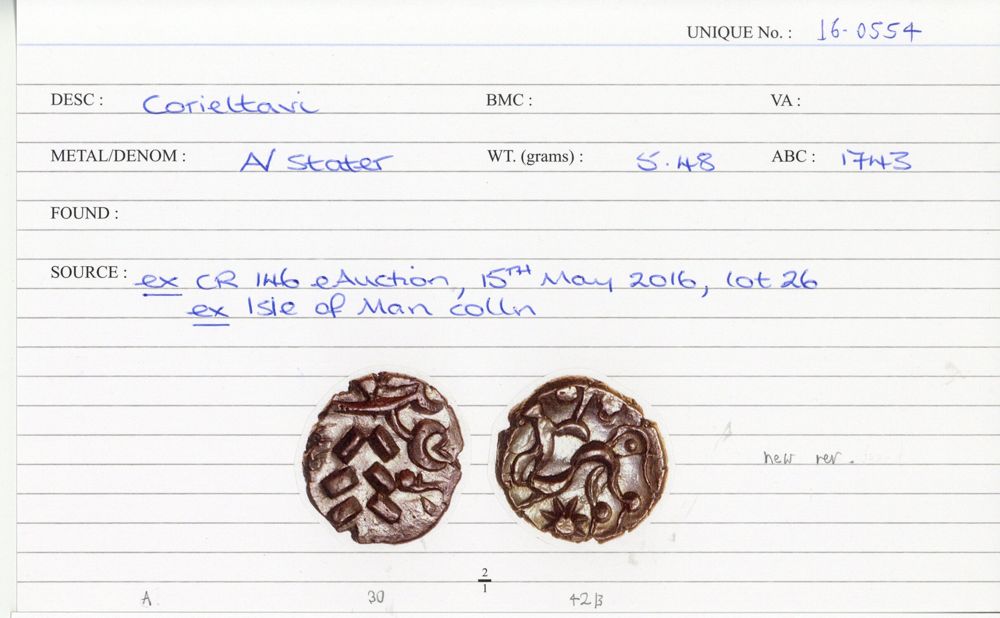 UNIQUE No. : 16-0554
DESC : Corieltavi BMC : VA :
METAL/DENOM : A/ Stater WT. (grams) : 5.48 ABC : 1743
FOUND :
SOURCE : ex CR 146 eAuction, 15TH May 2016, lot 26
ex Isle of Man colln
new rev.
2
1
A 30 42B